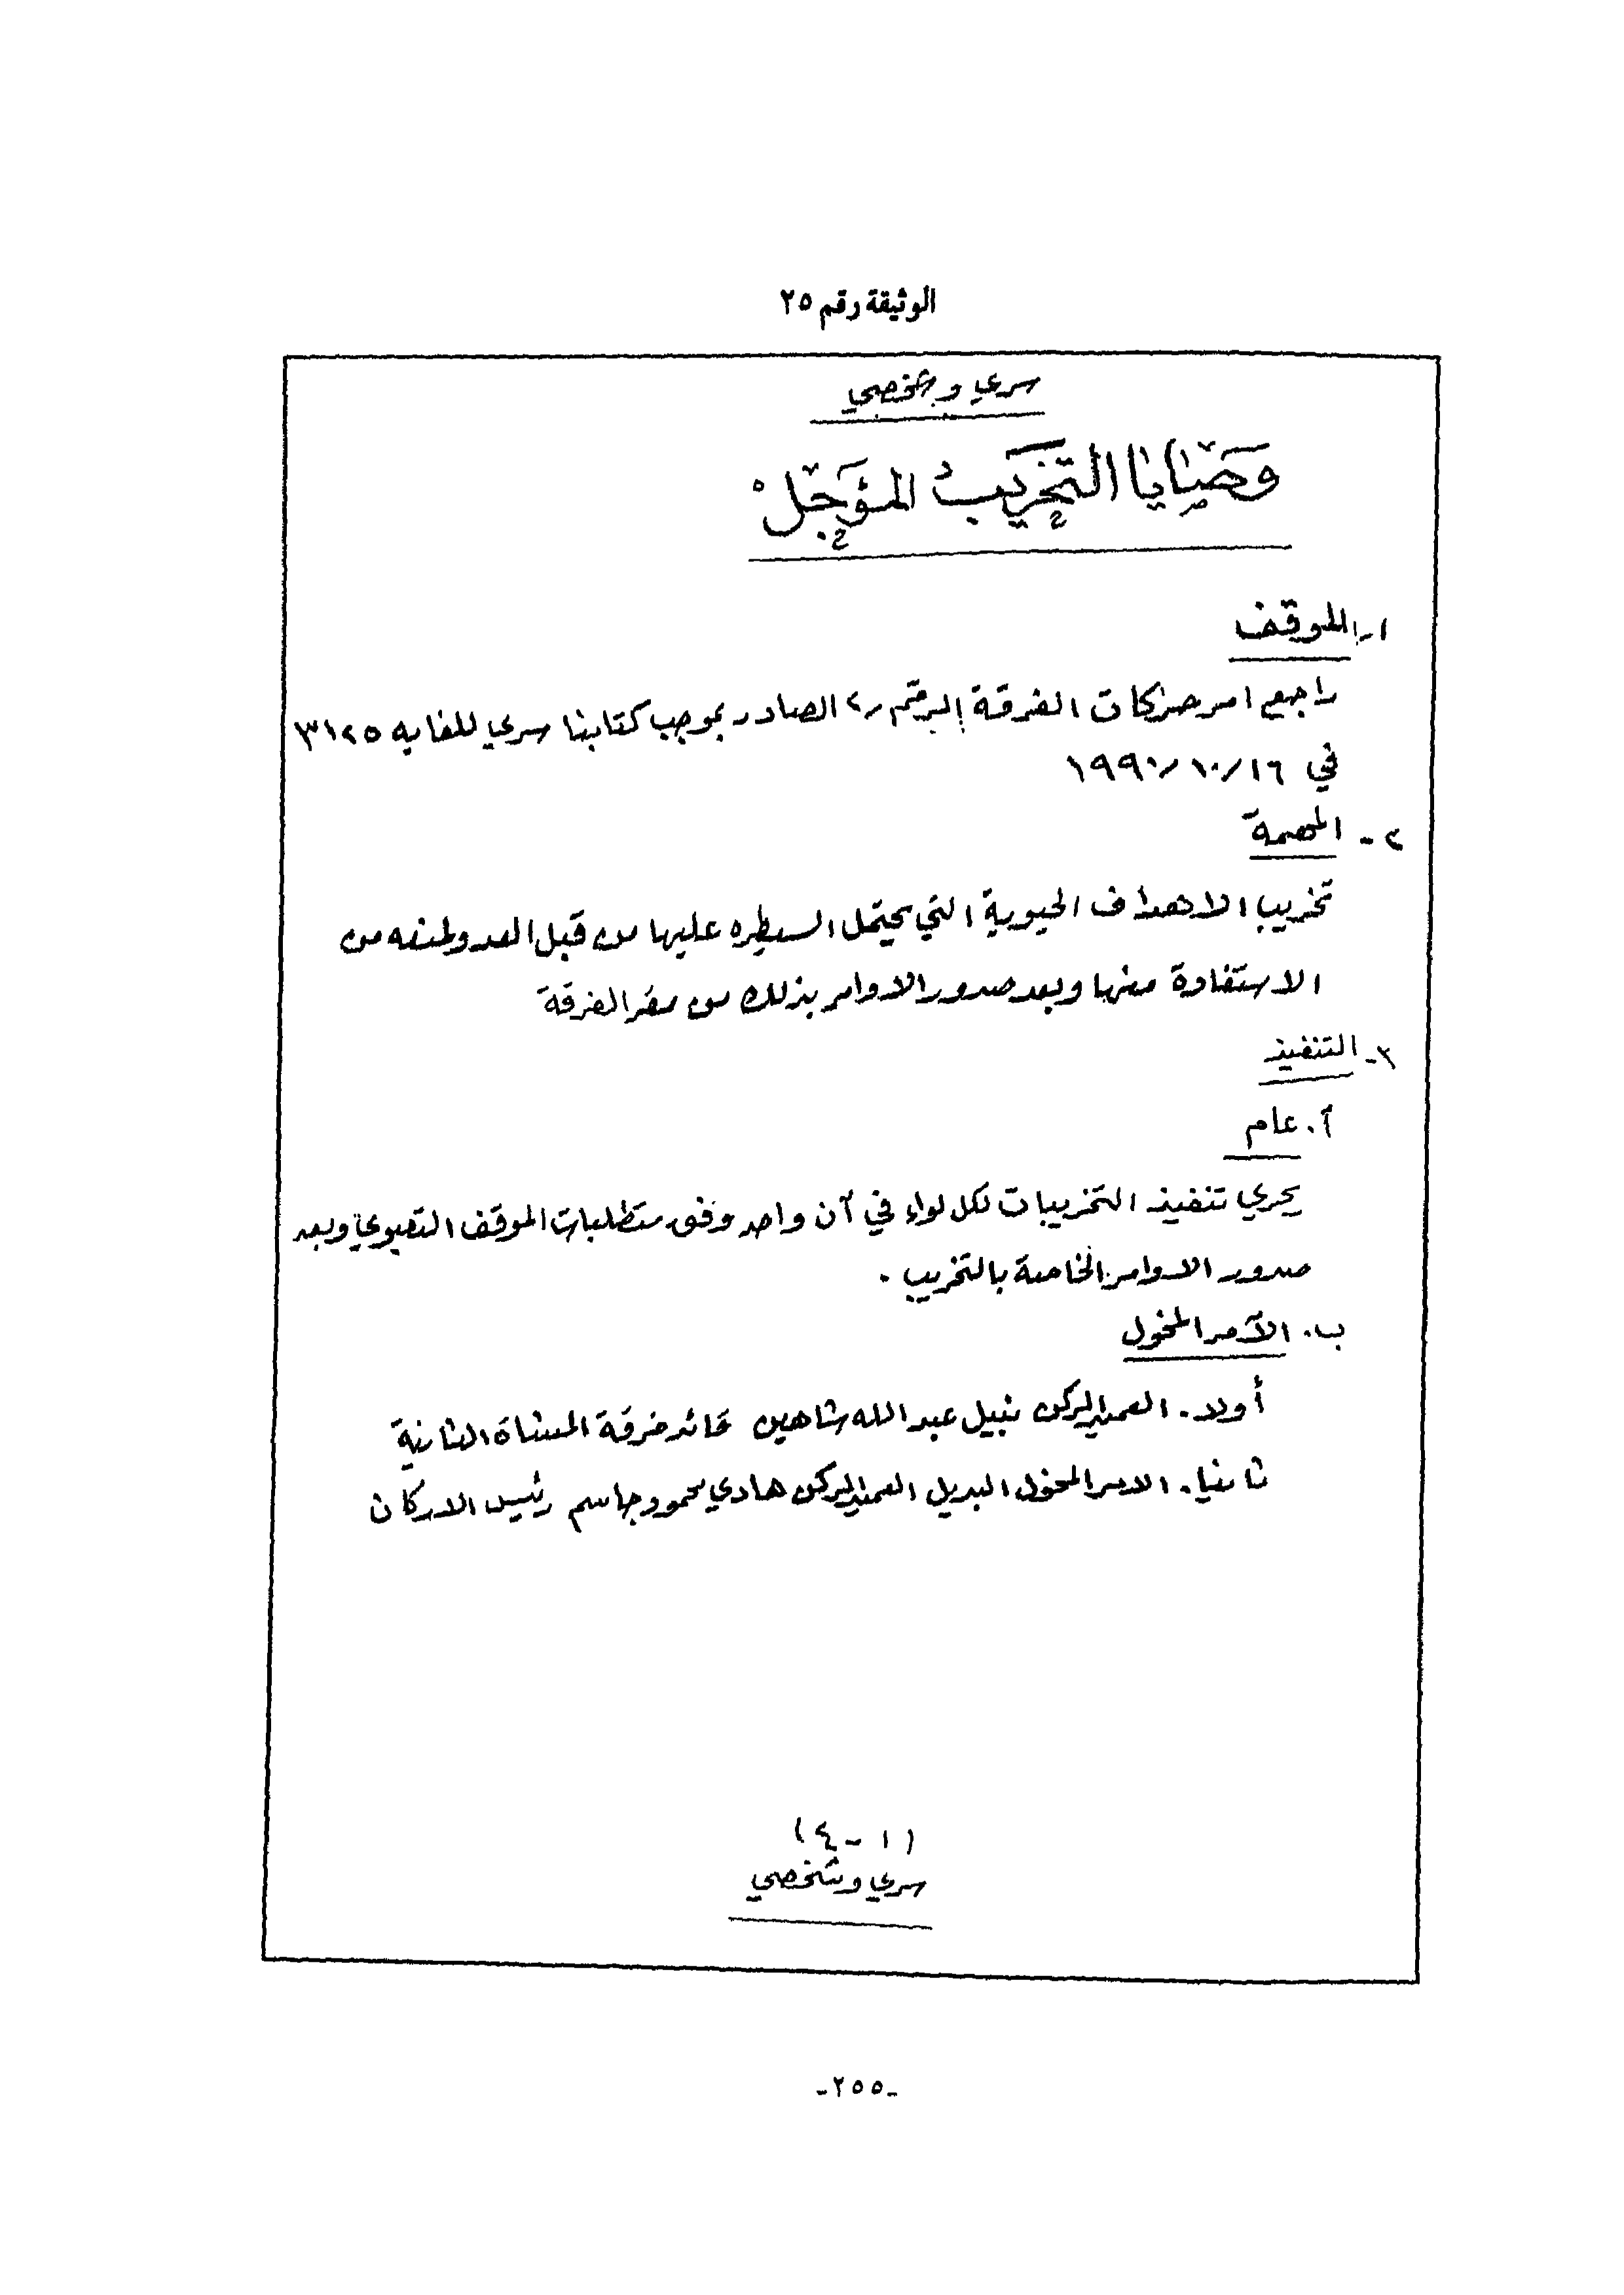 الوثيقة رقم ٢٥
سري وشخصي
وصايا التخريب المؤجل
١- الموقف
راجع امر حركات الفرقة المرقم ٢ الصادر بموجب كتابنا سري للغايه ٣١٢٥
في ١٦/١٠/١٩٩٠
٢- المهمة
تخريب الاهداف الحيوية التي يحتمل السيطره عليها من قبل العدو لمنعه من
الاستفادة منها وبعد صدور الاوامر بذلك من مقر الفرقة
٣- التنفيذ
آ. عام
يجري تنفيذ التخريبات لكل لواء في آن واحد وفق متطلبات الموقف التعبوي وبعد
صدور الاوامر الخاصة بالتخريب .
ب. الآمر المخول
أولا. العميد الركن نبيل عبدالله شاهين قائد فرقة المشاة الثانية
ثانيا. الامر المخول البديل العميد الركن هادي محمود جاسم رئيس الاركان
(١-٤)
سري وشخصي
-٢٥٥-